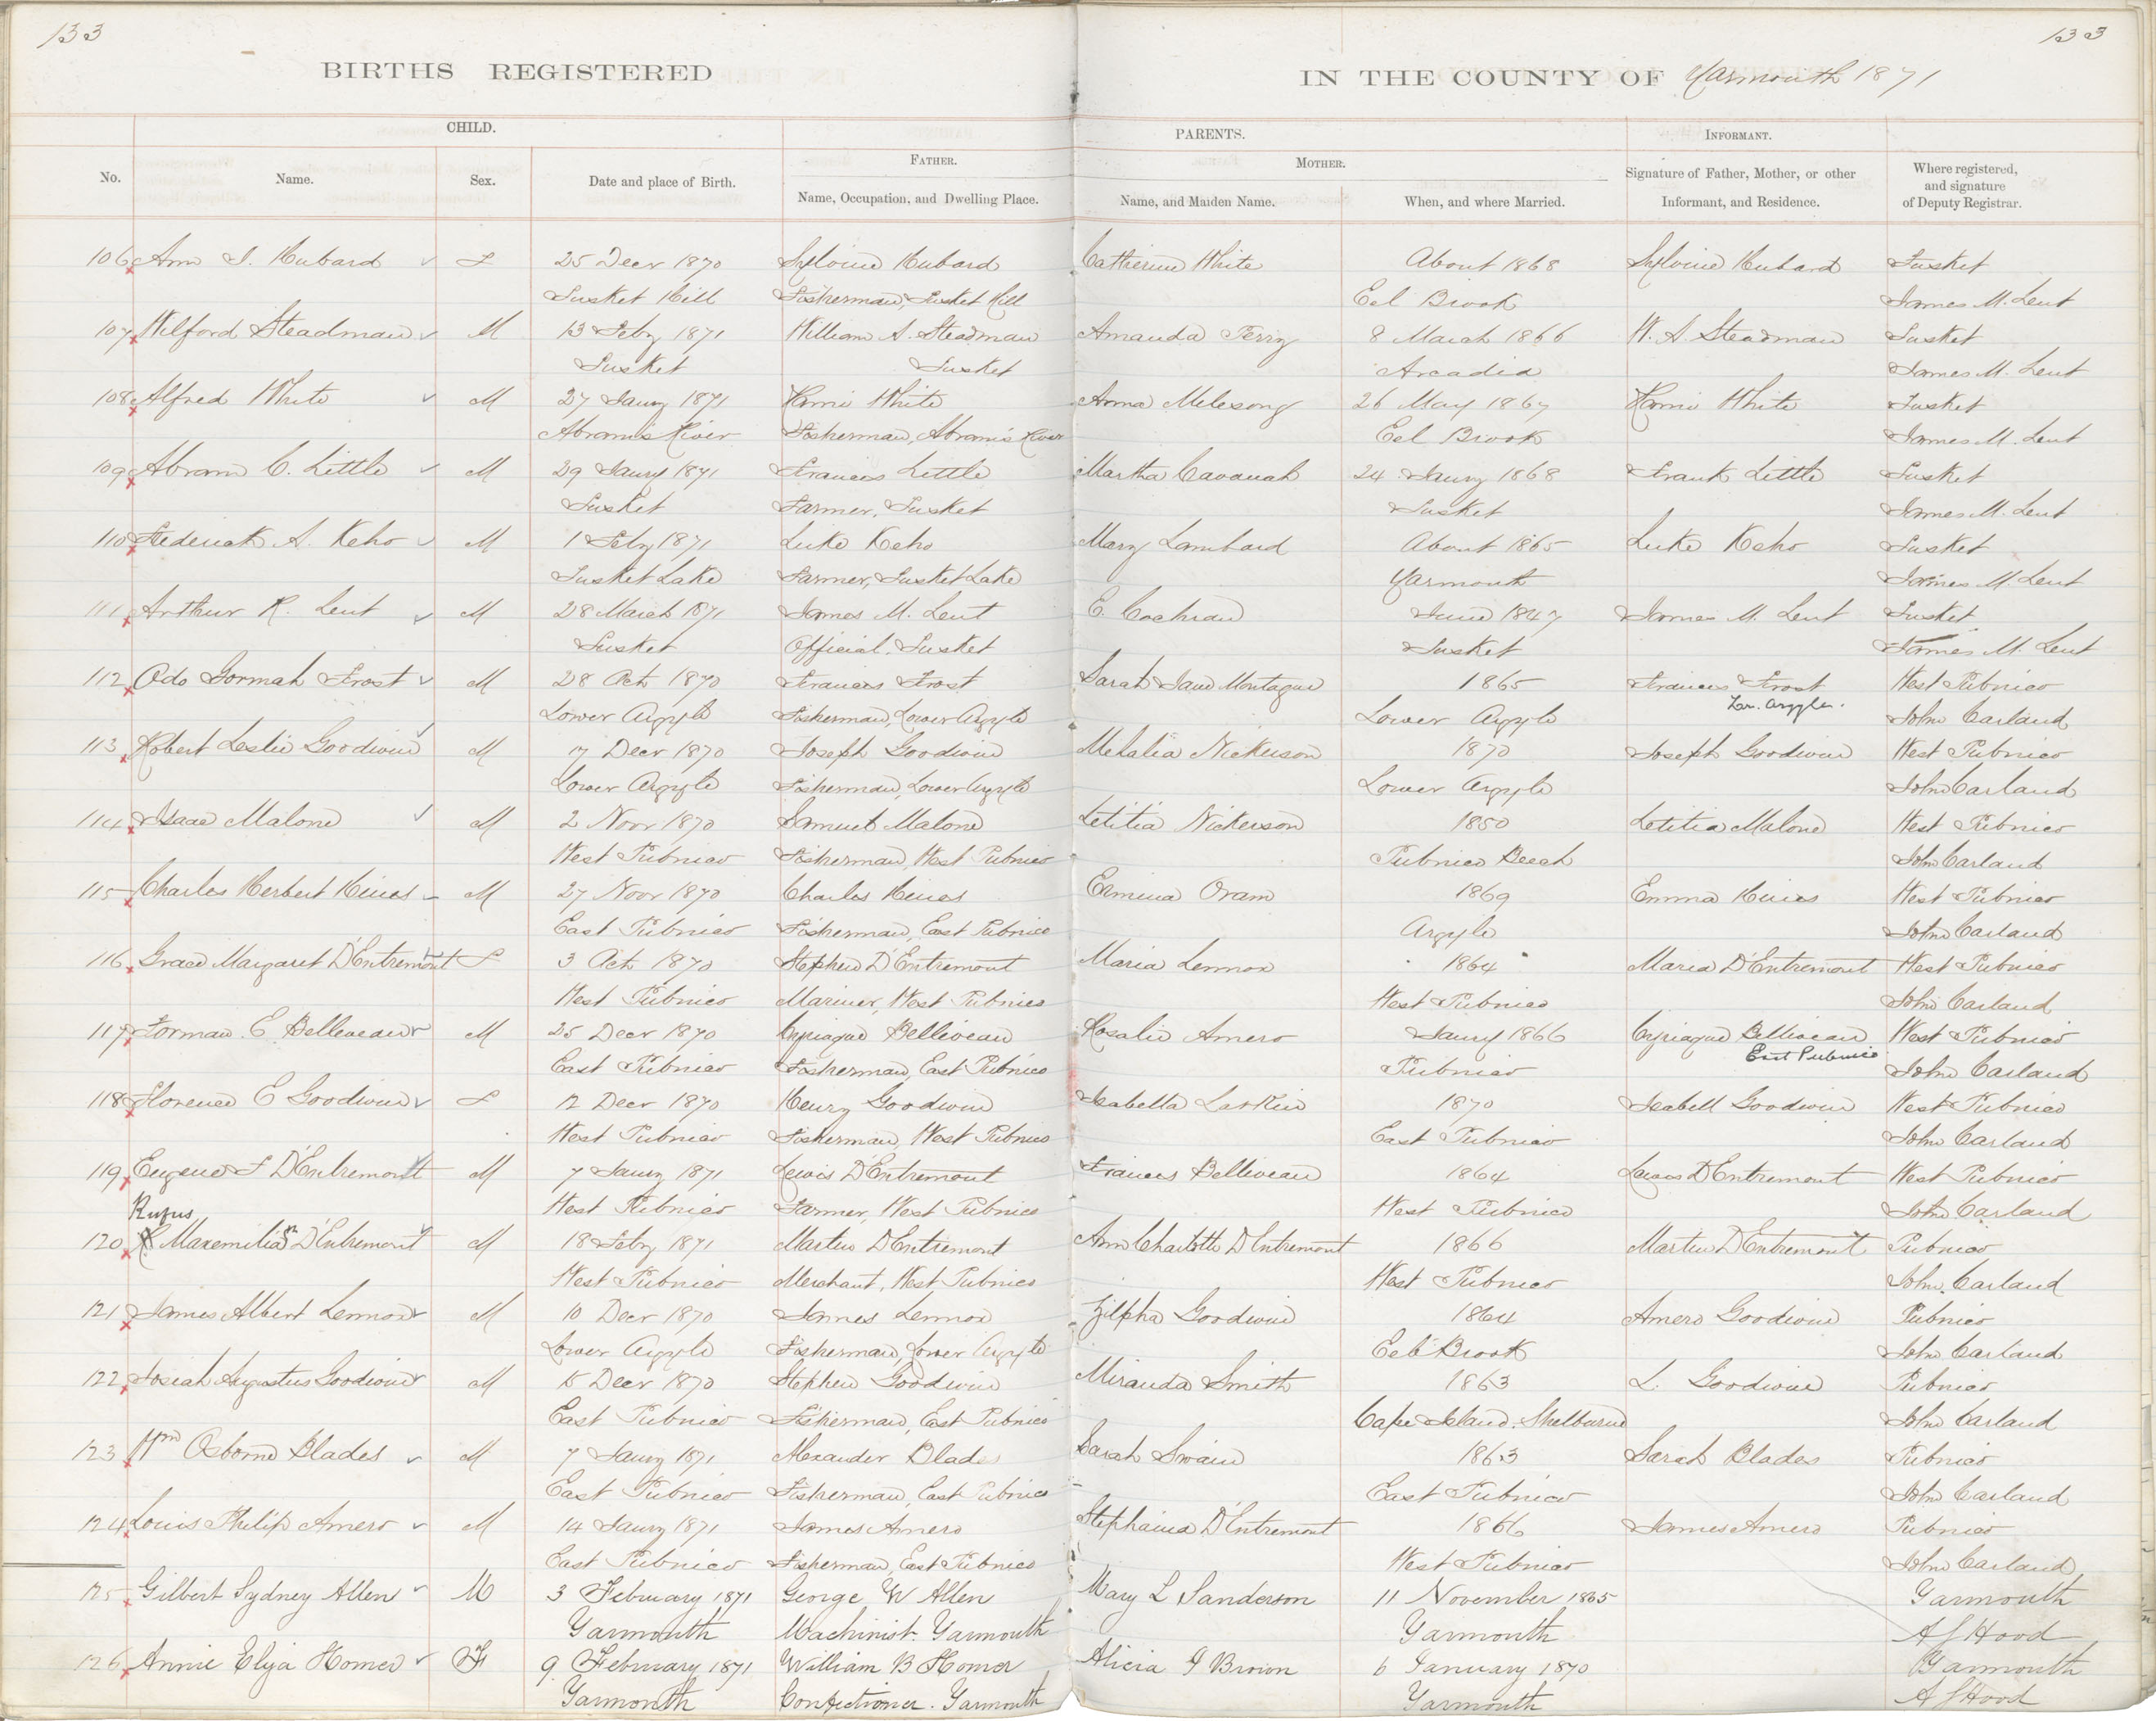 133
133
BIRTHS REGISTERED
IN THE COUNTY OF Yarmouth 1871
CHILD.
PARENTS.
INFORMANT.
No.
Name.
Sex.
Date and place of Birth.
FATHER.
Name, Occupation, and Dwelling Place.
MOTHER.
Name, and Maiden Name.
When, and where Married.
Signature of Father, Mother, or other
Informant, and Residence.
Where registered,
and signature
of Deputy Registrar.
106 Ann I. Hubard F 25 Decr 1870 Sylvine Hubard Catherine White About 1868 Sylvine Hubard Tusket
Tusket Hill Fisherman, Tusket Hill Eel Brook James M. Lent
107 Wilford Steadman M 13 Feby 1871 William A. Steadman Amanda Perry 8 March 1866 W. A. Steadman Tusket
Tusket Tusket Arcadia James M. Lent
108 Alfred White M 27 Jany 1871 Remi White Anna 26 May 1867 Remi White Tusket
Abram's River Fisherman, Abram's River Eel Brook James M. Lent
109 Abram C. Little M 29 Jany 1871 Francis Little Martha Cavanah 24 Jany 1868 Frank Little Tusket
Tusket Farmer, Tusket Tusket James M. Lent
110 Frederick A. Keho M 1 Feby 1871 Luke Keho Mary Lambard About 1865 Luke Keho Tusket
Tusket Lake Farmer, Tusket Lake Yarmouth James M. Lent
111 Arthur R. Lent M 28 March 1871 James M. Lent E. Cochran June 1847 James M. Lent Tusket
Tusket Official. Tusket Tusket James M. Lent
112 Odo Gormah Frost M 28 Oct 1870 Francis Frost Sarah Jane Montague 1865 Frances Frost West Pubnico
Lower Argyle Fisherman, Lower Argyle Lower Argyle Lr. Argyle. John Carland
113 Robert Leslie Goodwin M 17 Decr 1870 Joseph Goodwin Mehalia Nickerson 1870 Joseph Goodwin West Pubnico
Lower Argyle Fisherman, Lower Argyle Lower Argyle John Carland
114 Isaac Malone M 2 Novr 1870 Samuel Malone Letitia Nickerson 1850 Letitia Malone West Pubnico
West Pubnico Fisherman, West Pubnico Pubnico Beech John Carland
115 Charles Herbert Hines M 27 Novr 1870 Charles Hines Ermina Oram 1869 Emma Hines West Pubnico
East Pubnico Fisherman, East Pubnico Argyle John Carland
116 Grace Margaret D'Entremont F 3 Oct 1870 Stephen D'Entremont Maria Lennox 1864 Maria D'Entremont West Pubnico
West Pubnico Mariner, West Pubnico West Pubnico John Carland
117 Forman E. Belleveau M 25 Decr 1870 Cyriaque Belliveau Rosalie Amero Jany 1866 Cyriaque Belliveau West Pubnico
East Pubnico Fisherman, East Pubnico Pubnico East Pubnico John Carland
118 Florence E Goodwin F 12 Decr 1870 Henry Goodwin Isabella Larkin 1870 Isabell Goodwin West Pubnico
West Pubnico Fisherman, West Pubnico East Pubnico John Carland
119 Eugene F D'Entremont M 7 Jany 1871 Lewis D'Entremont Frances Belliveau 1864 Lewis D'Entremont West Pubnico
West Pubnico Farmer, West Pubnico West Pubnico John Carland
Rufus
120 R Maxemilian D'Entremont M 18 Feby 1871 Martin D'Entremont Ann Charlotte D'Entremont 1866 Martin D'Entremont Pubnico
West Pubnico Merchant, West Pubnico West Pubnico John Carland
121 James Albert Lennox M 10 Decr 1870 James Lennox Zilpha Goodwin 1864 Amero Goodwin Pubnico
Lower Argyle Fisherman, Lower Argyle Eel Brook John Carland
122 Josiah Augustus Goodwin M 15 Decr 1870 Stephen Goodwin Miranda Smith 1863 L. Goodwin Pubnico
East Pubnico Fisherman, East Pubnico Cape Island. Shelburne John Carland
123 Wm Osborne Blades M 7 Jany 1871 Alexander Blades Sarah Swain 1863 Sarah Blades Pubnico
East Pubnico Fisherman, East Pubnico East Pubnico John Carland
124 Louis Philip Amero M 14 Jany 1871 James Amero Stephaina D'Entremont 1866 James Amero Pubnico
East Pubnico Fisherman, East Pubnico West Pubnico John Carland
125 Gilbert Sydney Allen M 3 February 1871 George W Allen Mary L Sanderson 11 November 1865 Yarmouth
Yarmouth Machinist. Yarmouth Yarmouth A J Hood
126 Annie Eliza Homer F 9 February 1871 William B Homer Alicia G Brown 6 January 1870 Yarmouth
Yarmouth Confectioner. Yarmouth Yarmouth A J Hood